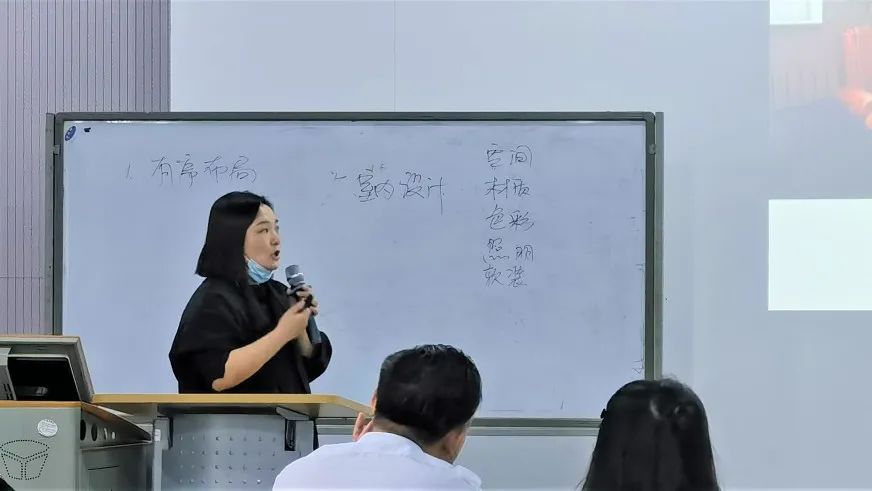 1. 有序布局
2 室内设计
空间
材质
色彩
照明
软装